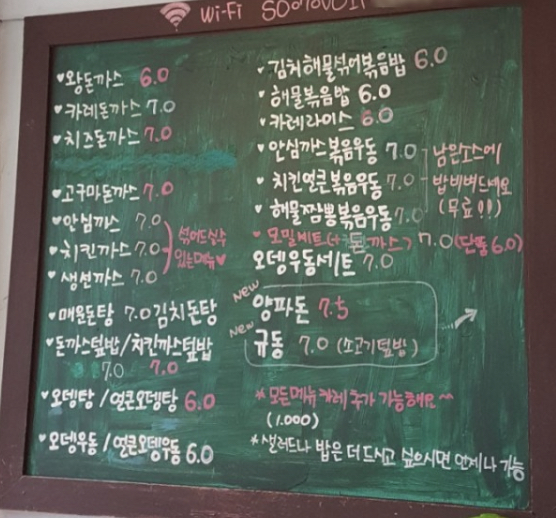 Wi-Fi
♥왕돈까스 6.0
♥카레돈까스 7.0
♥치즈돈까스 7.0
♥고구마돈까스 7.0
♥안심까스 7.0
♥치킨까스 7.0
♥생선까스 7.0
섞어드실수
있는메뉴♥
♥매운돈탕 7.0 김치돈탕
♥돈까스덮밥/치킨까스덮밥
7.0 7.0
♥오뎅탕/얼큰오뎅탕 6.0
♥오뎅우동/얼큰오뎅우동 6.0
♥김치해물섞어볶음밥 6.0
♥해물볶음밥 6.0
♥카레라이스 6.0
♥안심까스볶음우동 7.0
♥치킨얼큰볶음우동 7.0
♥해물짬뽕볶음우동 7.0
남은소스에
밥비벼드세요
(무료!!)
♥모밀세트(+돈까스) 7.0 (단품 6.0)
오뎅우동세트 7.0
New 양파돈 7.5
New 규동 7.0 (소고기덮밥)
*모든메뉴 카레추가 가능해요~~
(1.000)
*샐러드나 밥은 더 드시고 싶으시면 언제나 가능